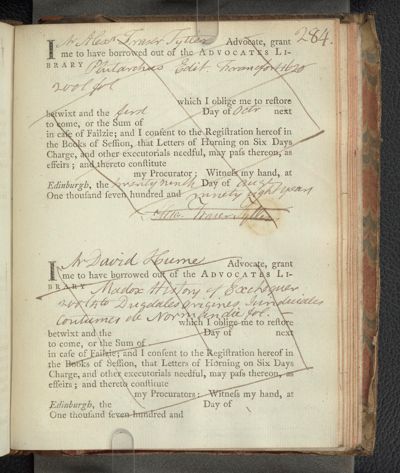 284.
I Mr Alexr Fraser Tytler Advocate, grant
me to have borrowed out of the ADVOCATES LI-
BRARY Plutarchus Edit. Francfort 1620
2 vol fol.
which I oblige me to restore
betwixt and the first Day of Octr next
to come, or the Sum of
in case of Failzie; and I consent to the Registration hereof in
the Books of Session, that Letters of Horning on Six Days
Charge, and other executorials needful, may pass thereon, as
effeirs; and thereto constitute
my Procurator; Witness my hand, at
Edinburgh, the twenty ninth Day of
One thousand seven hundred and ninety eight years
Alexr Fraser Tytler
I Mr David Hume Advocate, grant
me to have borrowed out of the ADVOCATES LI-
BRARY Madox History of Exchequer
Dugdales Origines Juridiciales
Coutumes de Normandie fol.
which I oblige me to restore
betwixt and the Day of next
to come, or the Sum of
in case of Failzie; and I consent to the Registration hereof in
the Books of Session, that Letters of Horning on Six Days
Charge, and other executorials needful, may pass thereon, as
effeirs; and thereto constitute
my Procurators; Witness my hand, at
Edinburgh, the Day of
One thousand seven hundred and